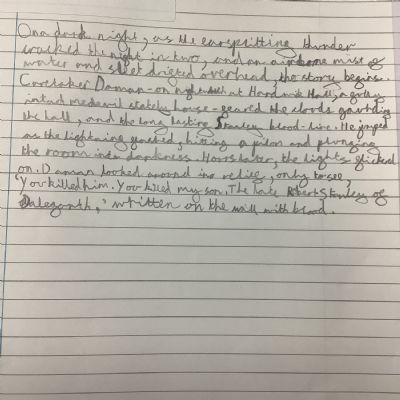 On a dark night, as the earsplitting thunder
cracked the night in two, and an airborne mist of
water and sleet drifted overhead, the story begins.
Caretaker Daman - on night at Hardwick Hall, a
medieval stately house - the clouds
the hall, and the long lasting Stanley blood-line. He jumped
as the lightning flashed, hitting a pilon and plunging
the room into darkness. Hours later, the lights flicked
on. Daman looked around in relief, only to see,
'You killed him. You killed my son. The late Robert Stanley of
Dalegarth,' written on the wall with blood.